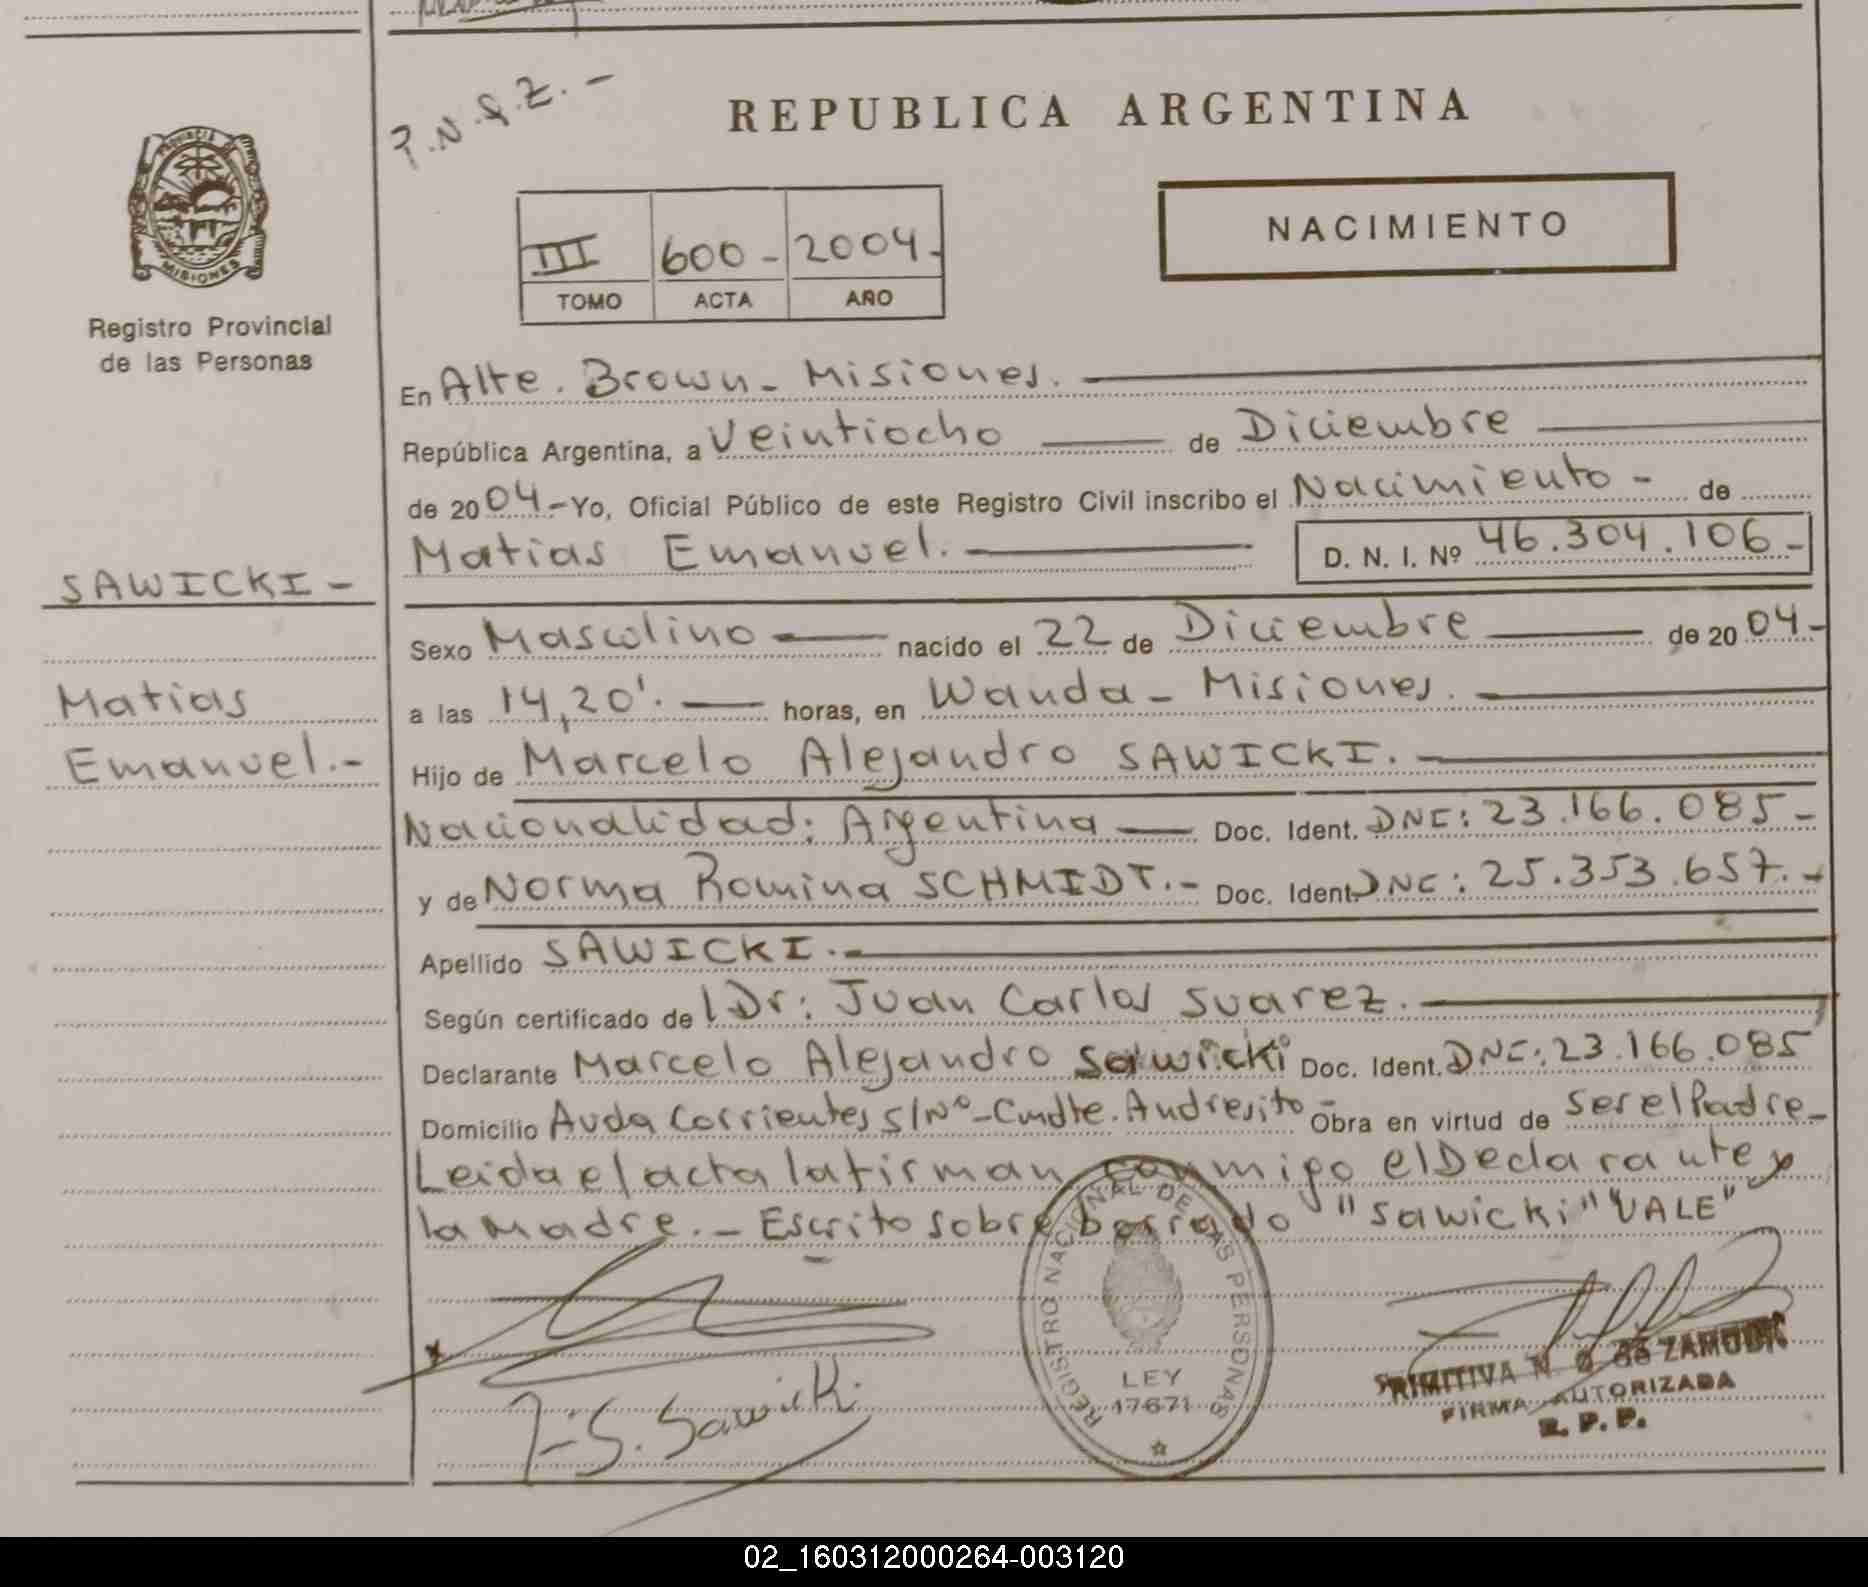 P.N.G.Z.-
REPUBLICA ARGENTINA
PROVINCIA DE
MISIONES
Registro Provincial
de las Personas
III 600- 2004-
TOMO ACTA AÑO
NACIMIENTO
En Alte. Brown- Misiones.
República Argentina, a Veintiocho de Diciembre
de 2004- Yo, Oficial Público de este Registro Civil inscribo el Nacimiento- de
Matias Emanuel.- D. N. I. Nº 46.304.106-
SAWICKI-
Matias
Emanuel.-
Sexo Masculino nacido el 22 de Diciembre de 2004-
a las 14,20'. horas, en Wanda- Misiones.
Hijo de Marcelo Alejandro SAWICKI.
Nacionalidad: Argentina Doc. Ident. DNI: 23.166.085-
y de Norma Romina SCHMIDT.- Doc. Ident. DNI: 25.353.657.-
Apellido SAWICKI.-
Según certificado del Dr: Juan Carlos Suarez.
Declarante Marcelo Alejandro Sawicki Doc. Ident. DNI: 23.166.085
Domicilio Avda Corrientes s/Nº-Cmdte. Andresito- Obra en virtud de ser el Padre-
Leida el acta la firman conmigo el Declarante y
la Madre.- Escrito sobre borrado "Sawicki" "VALE"
REGISTRO NACIONAL DE LAS PERSONAS
LEY
17671
Sawicki
PRIMITIVA N. G. de ZAMUDIO
FIRMA AUTORIZADA
R. P. P.
02_160312000264-003120